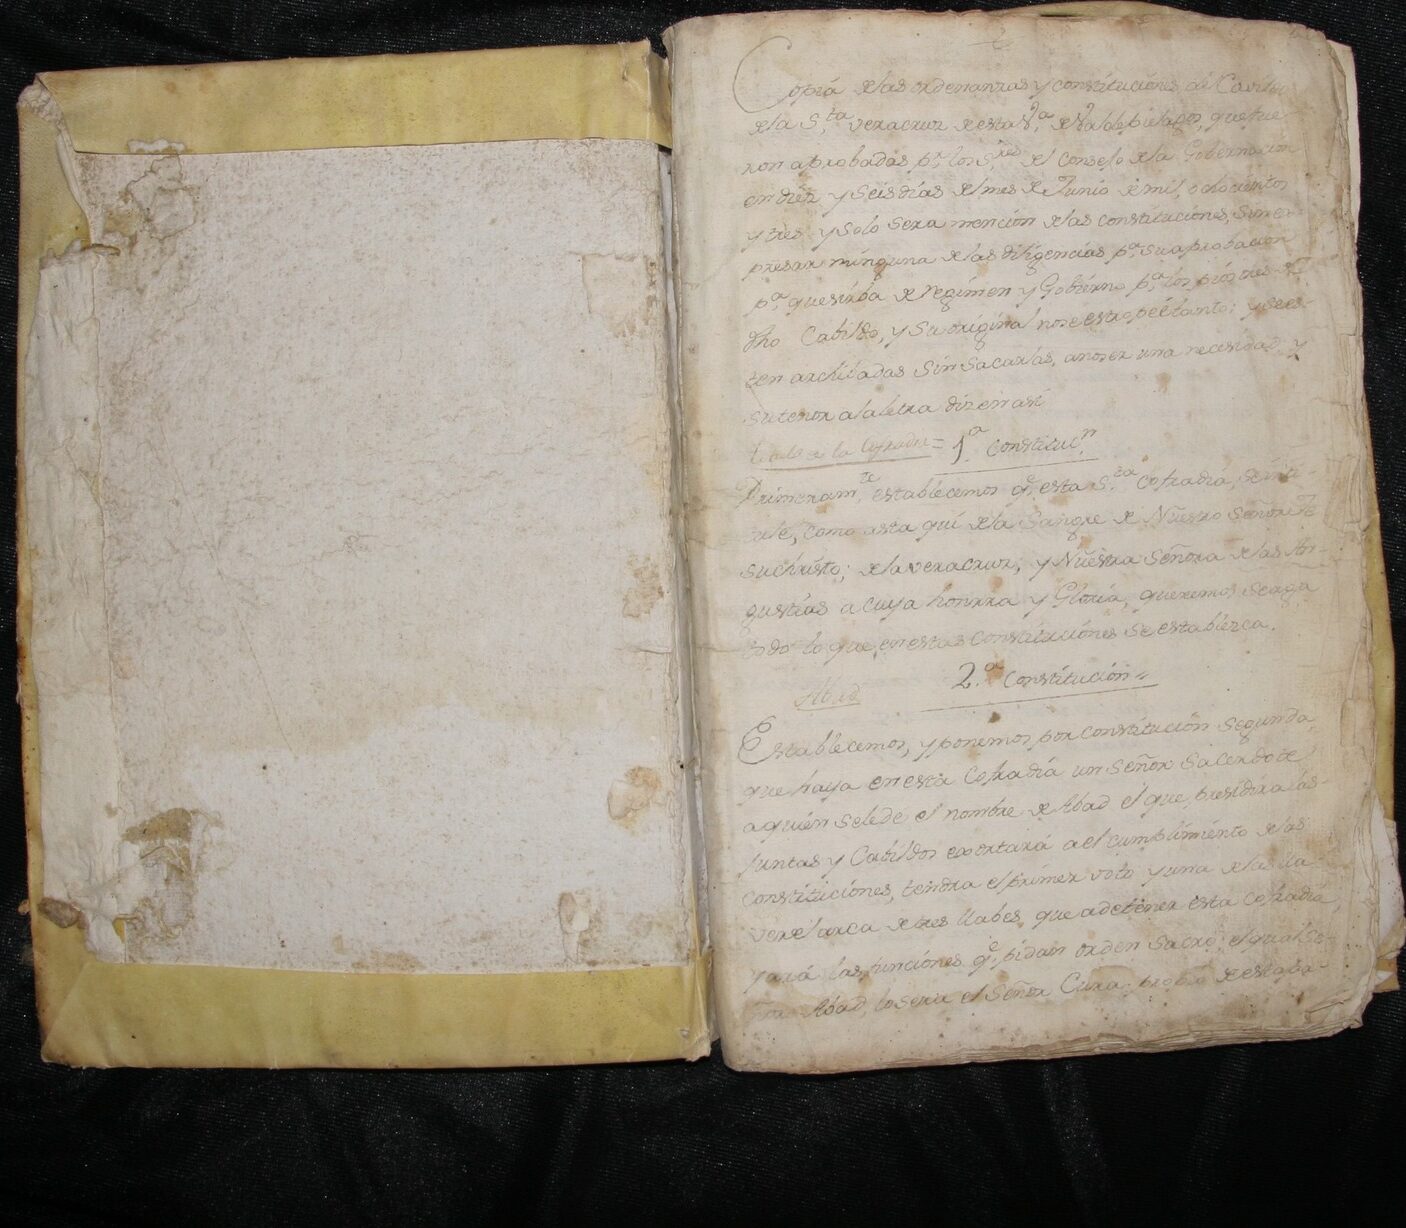 Copia de las ordenanzas y constituciones del Cavildo
de la S.ta veracruz de esta V.a de Valdepielagos, que fue-
ron aprobadas p.r los S.res del Consejo de la Gobernacion
en diez y Seis dias del mes de Junio de mil, ochocientos
y tres y solo sera mencion de las constituciones, sin es-
presar ninguna de las diligencias p.a su aprobacion
p.a que sirba de regimen y Gobierno p.a los
dho Cabildo, y su original no se estropee tanto; y se es-
ten archibadas Sin Sacarlas, a no ser una necesidad y
su tenor a la letra dizen asi
Titulo de la Cofradia = 1.a Constituc.n
Primeram.te establecemos q.e esta S.ta Cofradia, se inti-
tule, como asta qui de la Sangre de Nuestro Señor Je
suchristo; de la veracruz, y Nuestra Señora de las An-
gustias a cuya honrra y Gloria, queremos seaga
todo lo que en estas Constituciones se establezca.
Abad 2.a Constitución
Establecemos, y ponemos por constitución segunda,
que haya en esta Cofradía un Señor Sacerdote
a quien se le de el nombre de Abad el que presidira las
Juntas y Cabildos exortará a el cumplimiento de las
Constituciones, tendra el primer voto y una de las lla-
ves del arca de tres llabes, que a de tener esta Cofradia
y ará las funciones q.e pidan orden Sacro; el qual Se-
ñor Abad, lo sera el Señor Cura propio de esta